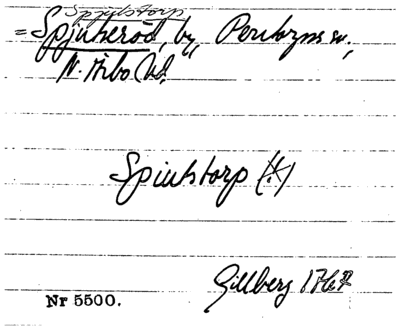 Spjutstorp
= Spjutseröd, by, Perstorps sn,
N. Åsbo hd.
Spiutstorp (!)
Gillberg 1767
Nr 5500.